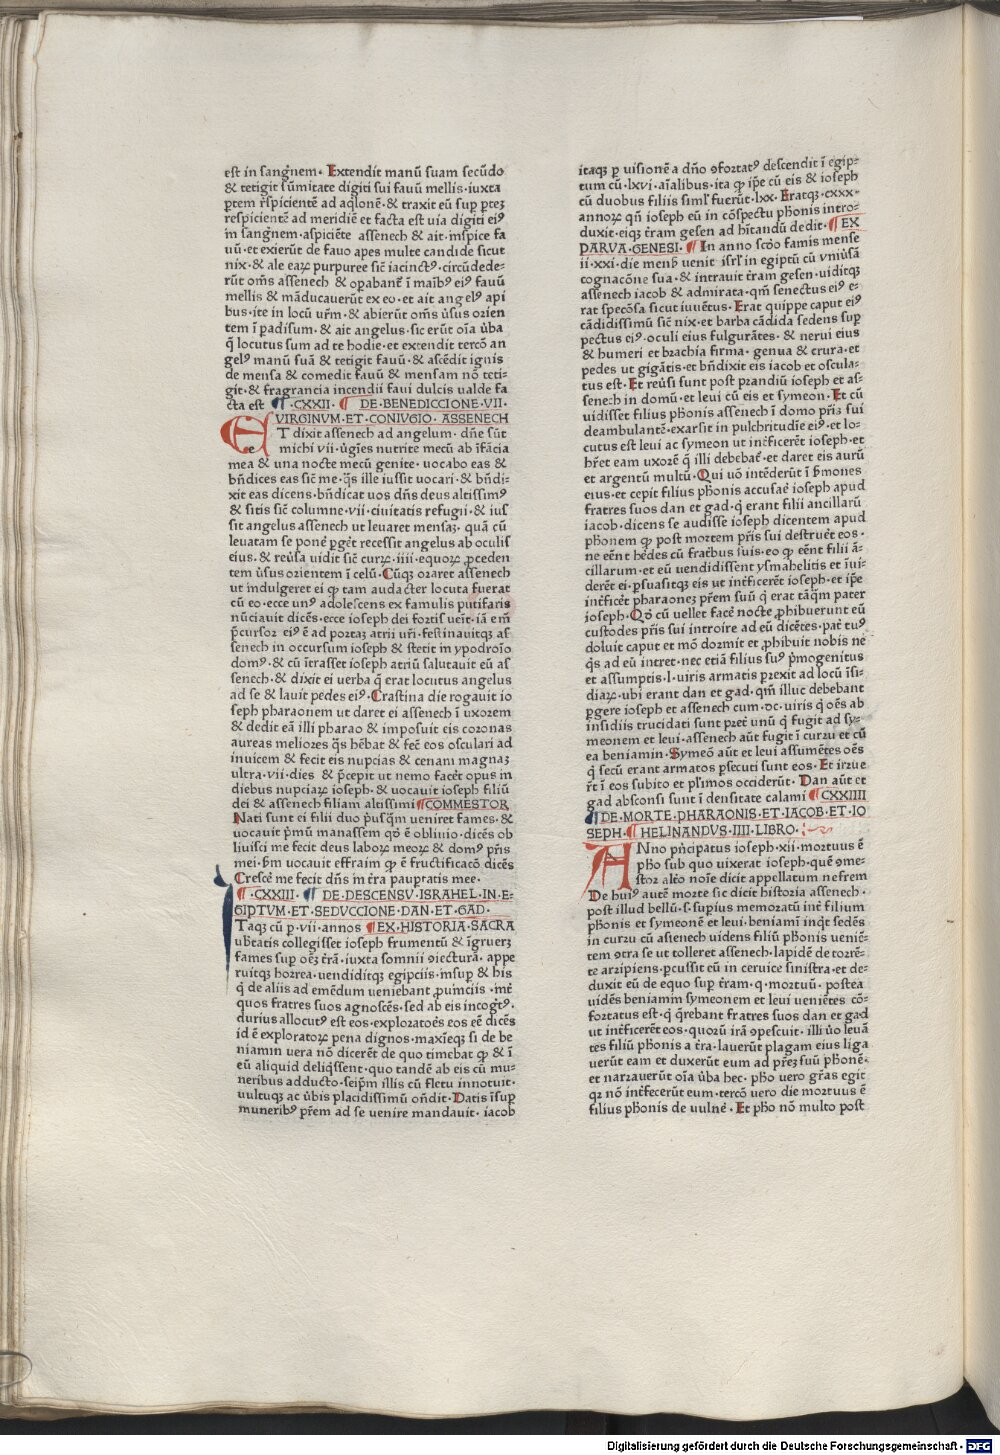 est in sangnem. Extendit manū suam secūdo
& tetigit sūmitate digiti sui fauū mellis.iuxta
ptem rspicientē ad aqlonē.& traxit eū sup ptez
respicientē ad meridiē et facta est uia digiti eiꝰ
in sangnem.aspiciēte assenech & ait.inspice fa
uū.et exierūt de fauo apes multe candide sicut
nix.& ale eaꝝ purpuree sicē iacinctꝰ.circūdede-
rūt om̄s assenech & opabant̄ ī maībꝰ eiꝰ fauū
mellis & māducauerūt ex eo.et ait angelꝰ api
bus.ite in locū ur̄m.& abierūt om̄s ūsus orien
tem ī padisum.& ait angelus.sic erūt oīa ūba
q̄ locutus sum ad te hodie.et extendit tercō an
gelꝰ manū suā & tetigit fauū.& ascēdit ignis
de mensa & comedit fauū & mensam nō teti-
git.& fragrancia incendii faui dulcis ualde fa
cta est ¶.CXXII. ¶ DE BENEDICCIONE.VII.
VIRGINVM.ET.CONIVGIO. ASSENECH
ET dixit assenech ad angelum. dn̄e sūt
michi vii.ūgīes nutrite mecū ab īfācia
mea & una nocte mecū genite. uocabo eas &
bn̄dices eas sicē me.q̄s ille iussit uocari.& bn̄di-
xit eas dicens.bn̄dicat uos dn̄s deus altissimꝰ
& sitis sicē columne.vii.ciuitatis refugii.& ius
sit angelus assenech ut leuaret mensaʒ. quā cū
leuatam se pone pget recessit angelus ab oculis
eius.& reūsa uidit sicē curꝝ.iiii.equoꝝ ꝓceden
tem ūsus orientem ī celū.Cūqʒ oraret assenech
ut indulgeret ei ꝙ tam audacter locuta fuerat
cū eo.ecce unꝰ adolescens ex famulis putifaris
nūciauit dicēs.ecce ioseph dei fortis ueit.iā em̄
p̄cursor eiꝰ ē ad portaʒ atrii ur̄i.festinauitqʒ as
senech in occursum ioseph & stetit in ypodroīo
domꝰ.& cū ītrasset ioseph atriū salutauit eū as
senech.& dixit ei uerba q̄ erat locutus angelus
ad se & lauit pedes eiꝰ.Crastina die rogauit io
seph pharaonem ut daret ei assenech ī uxorem
& dedit eā illi pharao & imposuit eis coronas
aureas meliores q̄s hēbat & fec̄ eos osculari ad
inuicem & fecit eis nupcias & cenam magnaʒ
ultra.vii.dies & p̄cepit ut nemo facēt opus in
diebus nupciaꝝ ioseph.& uocauit ioseph filiū
dei & assenech filiam altissimi ¶COMMESTOR
Nati sunt ei filii duo p̄usq̄m veniret fames.&
uocauit p̄mū manassem qđ ē obliuio.dicēs ob
liuisci me fecit deus laboꝝ meoꝝ & domꝰ pr̄is
mei.s̄m uocauit effraim ꝙ ē fructificacō dicēs
Crescē me fecit dn̄s in t̄ra paupratis mee.
¶.CXXIII. ¶ DE.DESCENSV.ISRAHEL.IN.E-
GIPTVM.ET.SEDVCCIONE.DAN.ET.GAD.
ITaqʒ cū p.vii.annos ¶EX.HISTORIA.SACRA
ub̄tatis collegisset ioseph frumentū & īgruerʒ
fames sup oēʒ t̄rā.iuxta somnii ꝯiecturā. appe
ruitqʒ horrea.uendiditqʒ egipciis.insup & his
q̄ de aliis ad emēdum ueniebant ꝓuinciis.int̄
quos fratres suos agnoscēs.sed ab eis incogtꝰ.
durius allocutꝰ est eos.exploratoēs eos eē dicēs
id ē exploratoꝝ pena dignos.maxīeqʒ si de be
niamin uera nō dicerēt de quo timebat ꝙ & ī
eū aliquid deliqssent.quo tandē ab eis cū mu-
neribus adducto.seipm illis cū fletu innotuit.
uultuqʒ ac ūbis placidissimū on̄dit.Datis īsup
muneribꝰ pr̄em ad se uenire mandauit.iacob
itaqʒ p uisionē a dn̄o ꝯfortatꝰ descendit ī egip-
tum cū.lxvi.aīalibus.ita ꝙ ip̄e cū eis & ioseph
cū duobus filiis siml̄ fuerūt.lxx. Eratqʒ.cxxx.
annoꝝ qn̄ ioseph eū in cōspectu ph̄onis intro-
duxit.eiqʒ t̄ram gesen ad hītandū dedit. ¶EX
PARVA.GENESI. ¶ In anno scd̄o famis mense
ii.xxi.die mens̄ uenit isr̄l in egiptū cū vniūsa
cognacōne sua.& intrauit t̄ram gesen.uiditqʒ
assenech iacob & admirata.qm̄ senectus eiꝰ e-
rat specōsa sicut iuuētus.Erat quippe caput eiꝰ
cādidissimū sicē nix.et barba cādida sedens sup
pectus eiꝰ.oculi eius fulgurātes.& nerui eius
& humeri et brachia firma. genua & crura.et
pedes ut gigātis.et bn̄dixit eis iacob et oscula-
tus est. Et reūsi sunt post prandiū ioseph et as-
senech in domū.et leui cū eis et symeon. Et cū
uidisset filius ph̄onis assenech ī domo pr̄is sui
deambulantē.exarsit in pulchritudīe eiꝰ.et lo-
cutus est leui ac symeon ut int̄ficerēt ioseph.et
hr̄et eam uxorē q̄ illi debebat̄.et daret eis aurū
et argentū multū.Qui uō intēderūt ī s̄mones
eius.et cepit filius ph̄onis accusaē ioseph apud
fratres suos dan et gad.q̄ erant filii ancillarū
iacob.dicens se audisse ioseph dicentem apud
ph̄onem ꝙ post mortem pr̄is sui destruet̄ eos.
ne eēnt hēdes cū frat̄bus suis.eo ꝙ eēnt filii ā-
cillarum.et eū uendidissent ysmahelitis et īui-
derēt ei.ꝑsuasitqʒ eis ut int̄ficerēt ioseph.et ip̄e
int̄ficēt pharaoneʒ pr̄em suū q̄ erat tāq̄m pater
ioseph.Qđ cū uellet facē nocte ꝓhibuerunt eū
custodes pr̄is sui introire ad eū dicētes.pat̄ tuꝰ
doluit caput et mō dormit et ꝓhibuit nobis ne
q̄s ad eū intret.nec etiā filius suꝰ p̄mogenitus
et assumptis.l.uiris armatis prexit ad locū īsi-
diaꝝ.ubi erant dan et gad.qm̄ illuc debebant
pgere ioseph et assenech cum.dc.uiris q̄ oēs ab
insidiis trucidati sunt pret̄ unū q̄ fugit ad sy-
meonem et leui.assenech aūt fugit ī curru et cū
ea beniamin.Symeō aūt et leui assumētes oēs
q̄ secū erant armatos psecuti sunt eos.Et irrue
rt̄ ī eos subito et pl̄imos occiderūt. Dan aūt et
gad absconsi sunt ī densitate calami ¶CXXIIII
¶DE.MORTE.PHARAONIS.ET.IACOB.ET.IO
SEPH.¶HELINANDVS.IIII.LIBRO.
ANno pn̄cipatus ioseph.xii.mortuus ē
ph̄o sub quo uixerat ioseph.quē ꝯme-
stor alt̄o noīe dicit appellatum nefrem
De huiꝰ autē morte sic dicit historia assenech.
post illud bellū.s.supius memoratū int̄ filium
ph̄onis et symeonē et leui.beniamī inqt̄ sedēs
in curru cū assenech uidens filiū ph̄onis ueniē-
tem ꝯtra se ut tolleret assenech.lapidē de torrē-
te arripiens.pcussit eū in ceruice sinistra.et de-
duxit eū de equo sup t̄ram.q.mortuū. postea
uidēs beniamin symeonem et leui uenietes cō-
fortatus est.q q̄rebant fratres suos dan et gad
ut int̄ficerēt eos.quorū irā ꝯpescuit.illi ūo leuā
tes filiū ph̄onis a t̄ra.lauerūt plagam eius liga
uerūt eam et duxerūt eum ad pr̄eʒ suū ph̄onē.
et narrauerūt oīa ūba hec.ph̄o vero gr̄as egit
qꝛ nō int̄fecerūt eum.tercō vero die mortuus ē
filius ph̄onis de uulne. Et ph̄o nō multo post
Digitalisierung gefördert durch die Deutsche Forschungsgemeinschaft - DFG